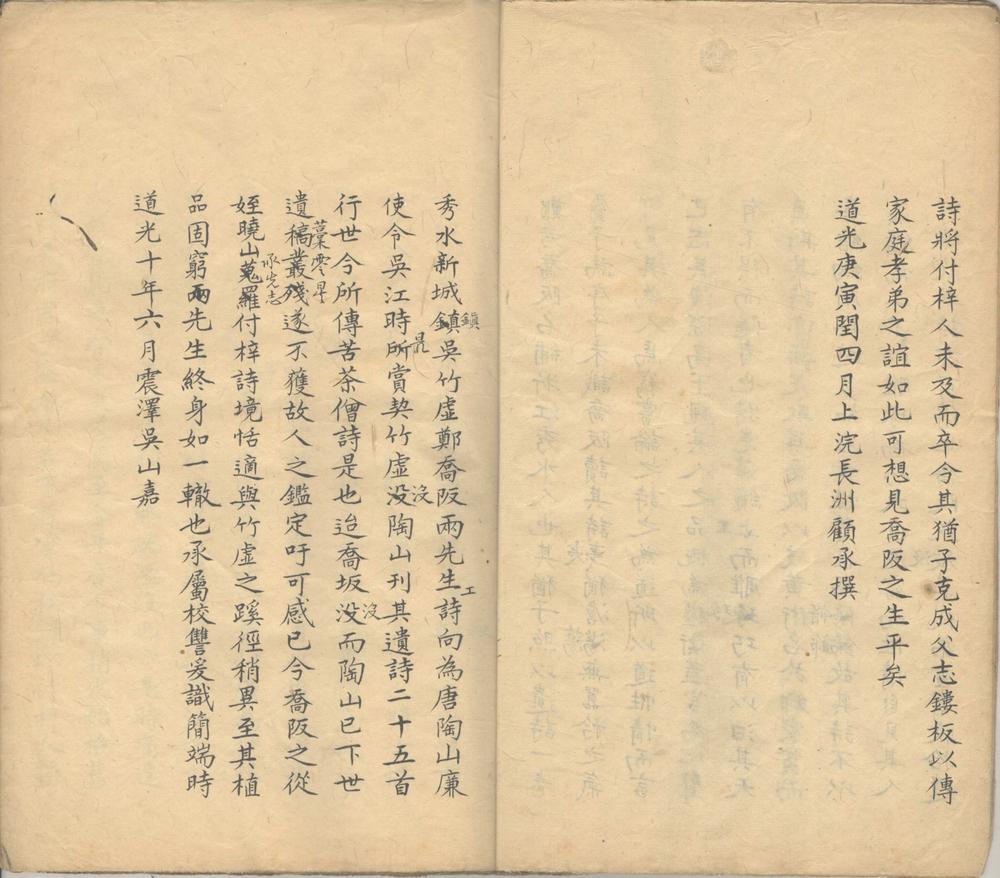 詩將付梓人未及而卒今其猶子克成父志鏤板以傳
家庭孝弟之誼如此可想見喬阪之生平矣
道光庚寅閏四月上浣長洲顧承撰
秀水新城鎮吳竹虛鄭喬阪兩先生詩向為唐陶山廉
鎮
工
使令吳江時所賞契竹虛没陶山刊其遺詩二十五首
最
沒
行世今所傳苦茶僧詩是也迨喬坂没而陶山已下世
沒
遺稿叢殘遂不獲故人之鑑定吁可感已今喬阪之從
藁零早
姪曉山蒐羅付梓詩境恬適與竹虛之蹊徑稍異至其植
承先志
品固窮兩先生終身如一轍也承屬校讐爰識簡端時
道光十年六月震澤吳山嘉